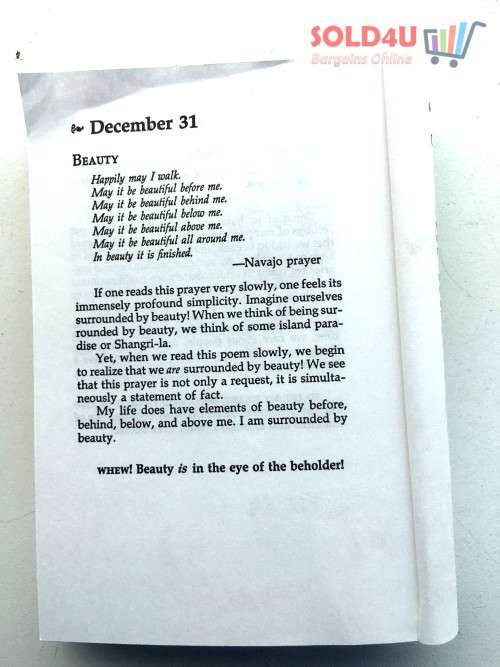 SOLD4U
Bargains Online
December 31
BEAUTY
Happily may I walk.
May it be beautiful before me.
May it be beautiful behind me.
May it be beautiful below me.
May it be beautiful above me.
May it be beautiful all around me.
In beauty it is finished.
—Navajo prayer
If one reads this prayer very slowly, one feels its
immensely profound simplicity. Imagine ourselves
surrounded by beauty! When we think of being sur-
rounded by beauty, we think of some island para-
dise or Shangri-la.
Yet, when we read this poem slowly, we begin
to realize that we are surrounded by beauty! We see
that this prayer is not only a request, it is simulta-
neously a statement of fact.
My life does have elements of beauty before,
behind, below, and above me. I am surrounded by
beauty.
WHEW! Beauty is in the eye of the beholder!